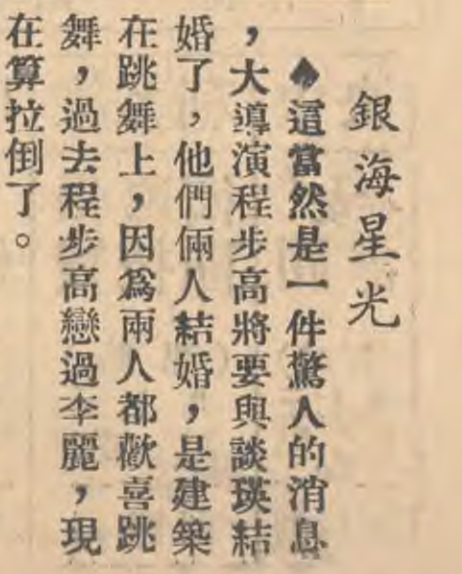 銀海星光
♠這當然是一件驚人的消息
，大導演程步高將要與談瑛結
婚了，他們倆人結婚，是建築
在跳舞上，因爲兩人都歡喜跳
舞，過去程步高戀過李麗，現
在算拉倒了。